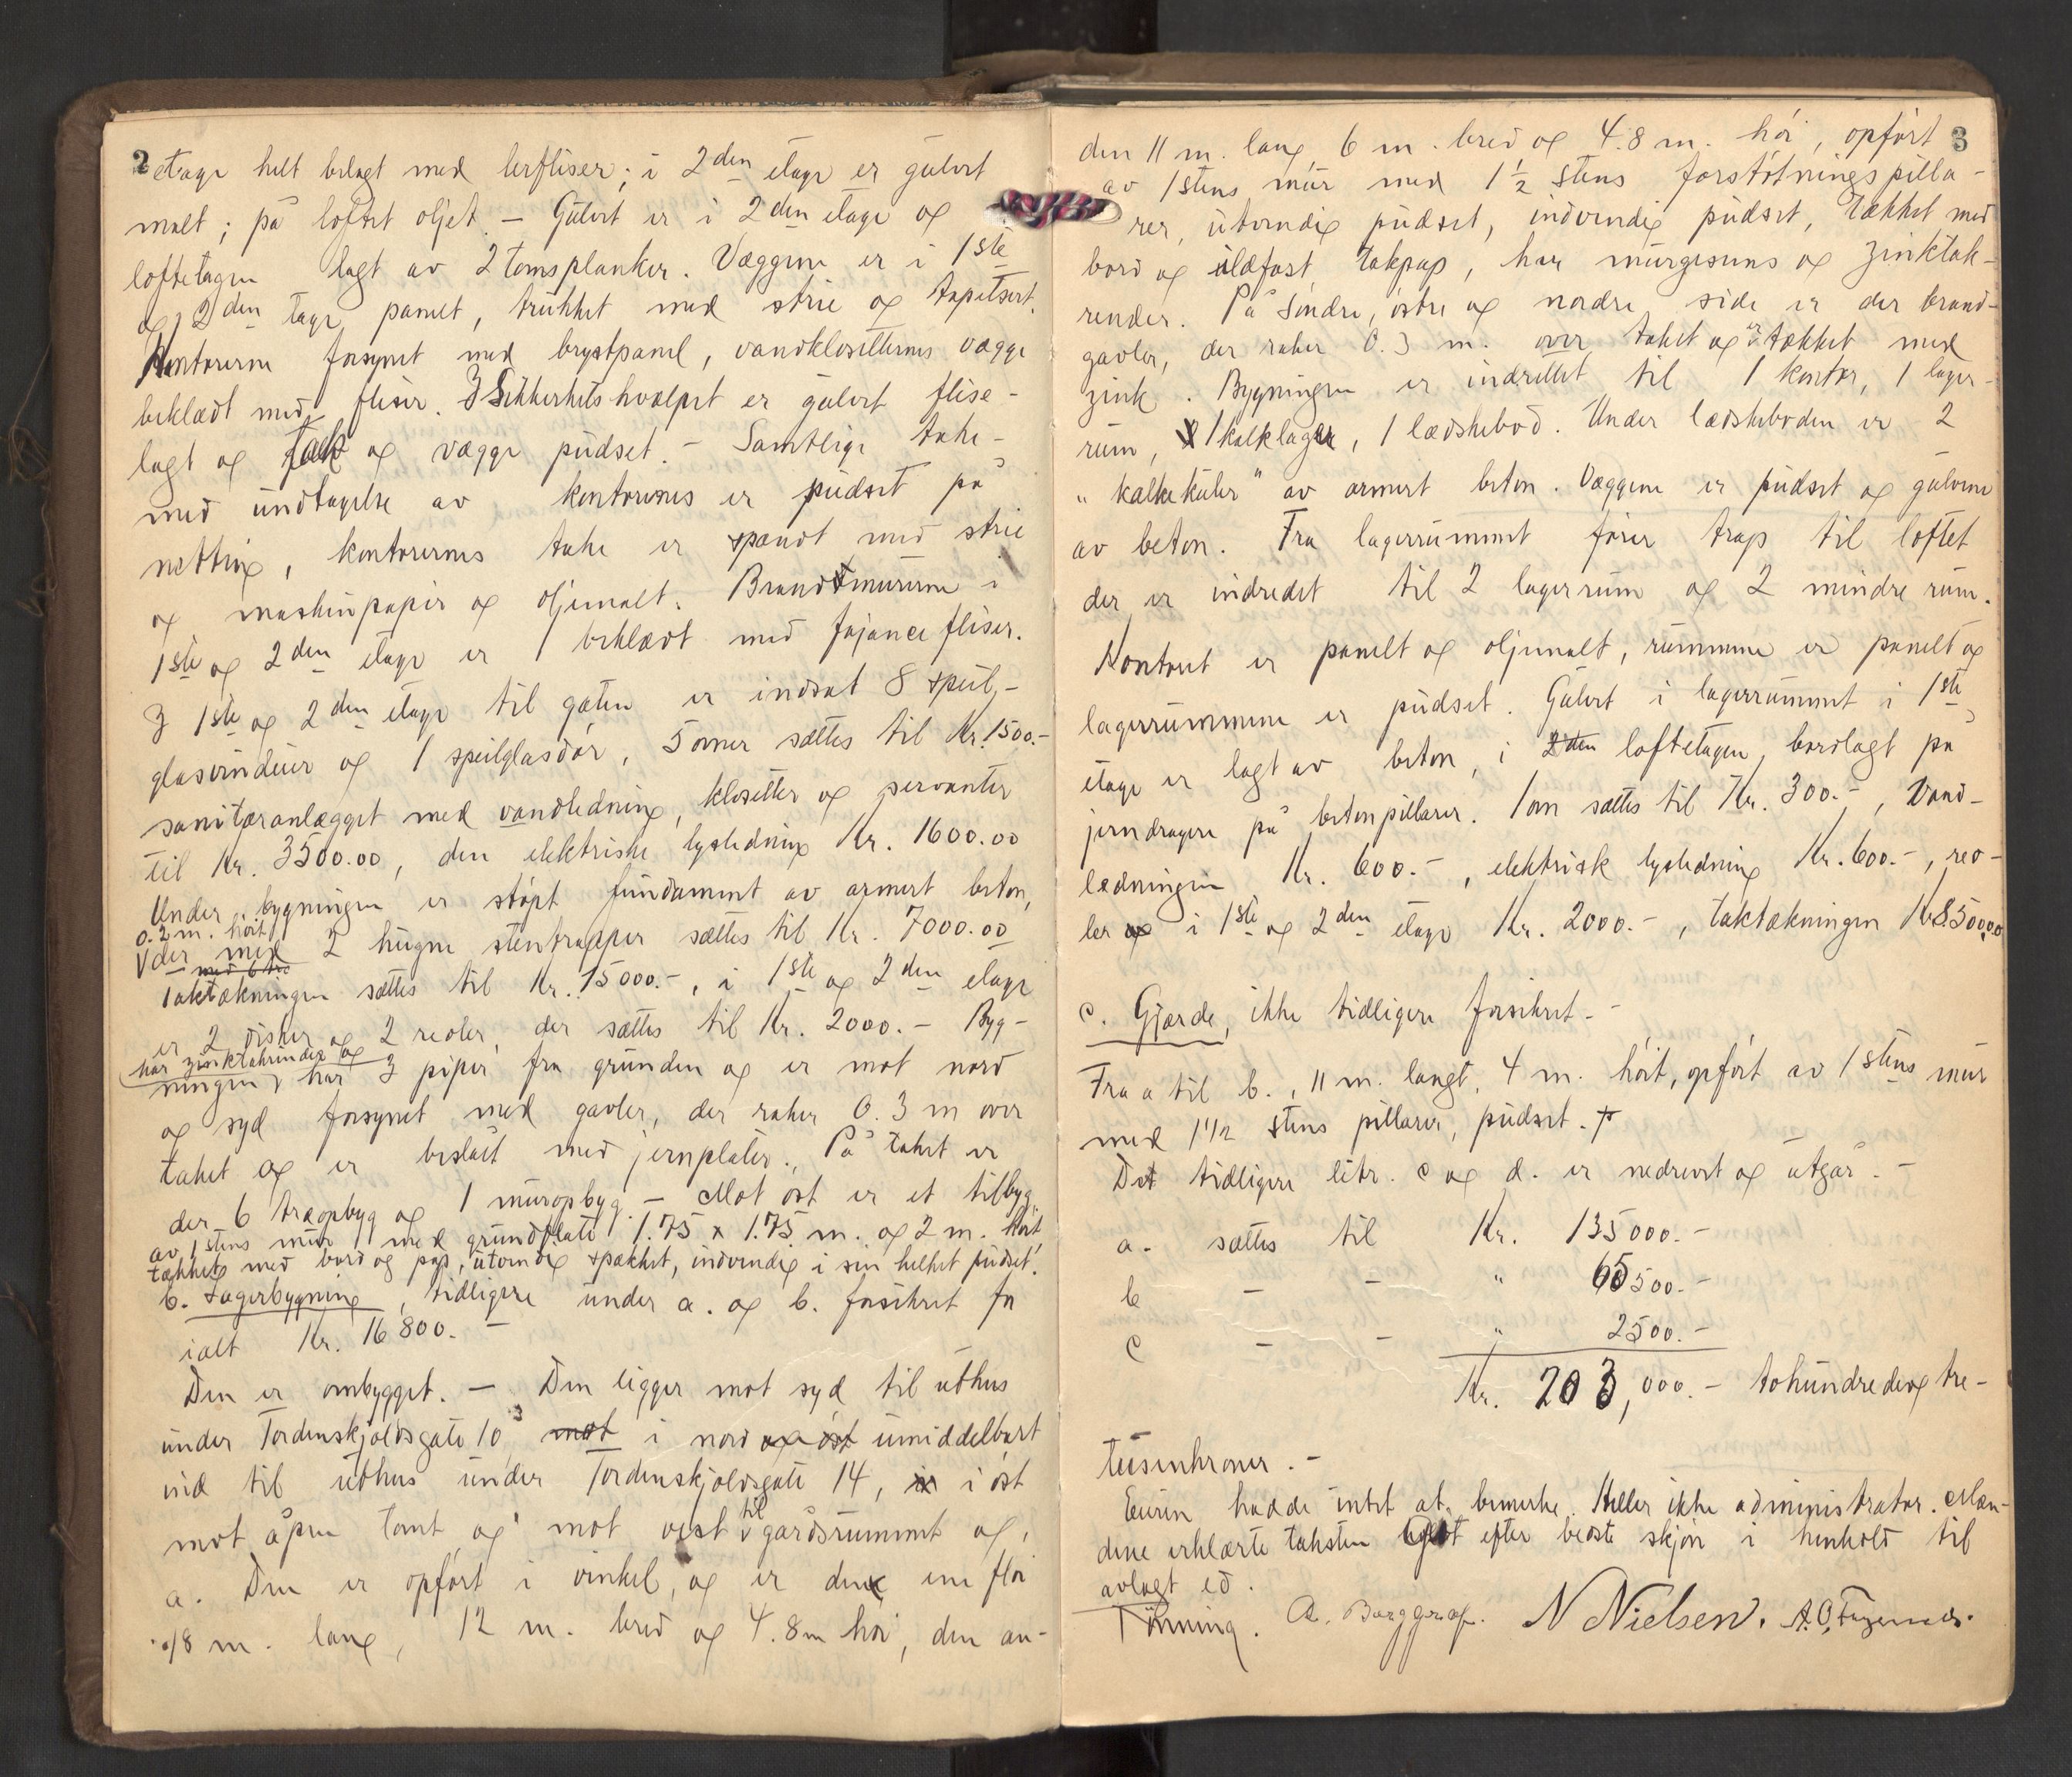 2
etage helt belagt med lerfliser; i 2den etage er gulvet
malt; på loftet oljet. – Gulvet er i 2den etage og
loftetagen lagt av 2 toms planker. Væggene er i 1ste
og 2den etage panelt, trukket med strie og tapetsert.
Kontorerne forsynet med brystpanel, vandklosetternes vægge
beklædt med fliser. I Sikkerhetshvælvet er gulvet flise-
lagt og tak og vægge pudset. – Samtlige take
med undtagelse av kontorernes er pudset på
netting, kontorernes take er spændt med strie
og maskinpapir og oljemalt. Brandmurene i
1ste og 2den etage er beklædt med fajancefliser.
I 1ste og 2den etage til gaten er indsat 8 speil-
glasvinduer og 1 speilglasdør, 5 ovner sættes til Kr. 1500.-
sanitæranlægget med vandledning, klosetter og servanter
til Kr. 3500.00, den elektriske lysledning Kr. 1600.00
Under bygningen er støpt fundament av armert beton,
0.2 m. høit
der med 2 hugne stentrapper sættes til Kr. 7000.00
Taktækningen sættes til Kr. 15000.-, i 1ste og 2den etage
er 2 disker og 2 reoler, der sættes til Kr. 2000.- Byg-
har zinktakrender og
ningen har 3 piper fra grunden og er mot nord
og syd forsynet med gavler, der raker 0.3 m over
taket og er beslått med jernplater. På taket er
der 6 træopbyg og 1 muropbyg. – Mot øst er et tilbyg,
av 1 stens mur med grundflate 1.75 x 1.75 m. og 2 m. høit
tækket med bord og pap, utvendig spækket, indvendig i sin helhet pudset.
b. Lagerbygning, tidligere under a. og b. forsikret for
ialt Kr. 16 800. –
Den er ombygget. – Den ligger mot syd til uthus
under Tordenskjoldsgate 10 mot i nord og øst umiddelbart
ind til uthus under Tordenskjoldsgate 14, i øst
mot åpen tomt og mot vest til gårdsrummet og
a. Den er opført i vinkel, og er den ene fløi
18 m. lang, 12 m. bred og 4.8 m høi, den an-
3
den 11 m. lang, 6 m. bred og 4.8 m. høi, opført
av 1 stens mur med 1 1/2 stens forstøtningspilla-
rer, utvendig pudset, indvendig pudset, tækket med
bord og ildfast takpap, har murgesims og zinktak-
render. På søndre, østre og nordre side er der brand-
gavler, der raker 0.3 m. over taket og er tækket med
zink. Bygningen er indrettet til 1 kontor, 1 lager-
rum, 1 kalklager, 1 læskebod. Under læskeboden er 2
"kalkekuler" av armert beton. Væggene er pudset og gulvene
av beton. Fra lagerrummet fører trap til loftet
der er indredet til 2 lagerrum og 2 mindre rum.
Kontoret er panelt og oljemalt, rummene er panelt og
lagerrummene er pudset. Gulvet i lagerrummet i 1ste
etage er lagt av beton, i 2den loftetagen, bordlagt på
jerndragere på betonpillarer. 1 ovn sættes til Kr. 300.-, Vand-
ledningen Kr. 600.-, elektrisk lysledning Kr. 600.-, reo-
ler i 1ste og 2den etage Kr. 2000.-, taktækningen Kr. 8500.00
c. Gjærde, ikke tidligere forsikret. –
Fra a til b., 11 m. langt, 4 m. høit, opført av 1 stens mur
med 1 1/2 stens pillarer, pudset. –
Det tidligere litr. c og d. er nedrevet og utgår. –
a. sættes til Kr. 135000.-
b – – " 65500.-
c – – " 2500.-
Kr. 203,000.- tohundredeog tre-
tusenkroner. –
Eieren hadde intet at bemerke. Heller ikke administrator. Mæn-
dene erklærte taksten avgit efter bedste skjøn i henhold til
avlagt ed.
Tönning. A. Borggraf. N Nielsen.